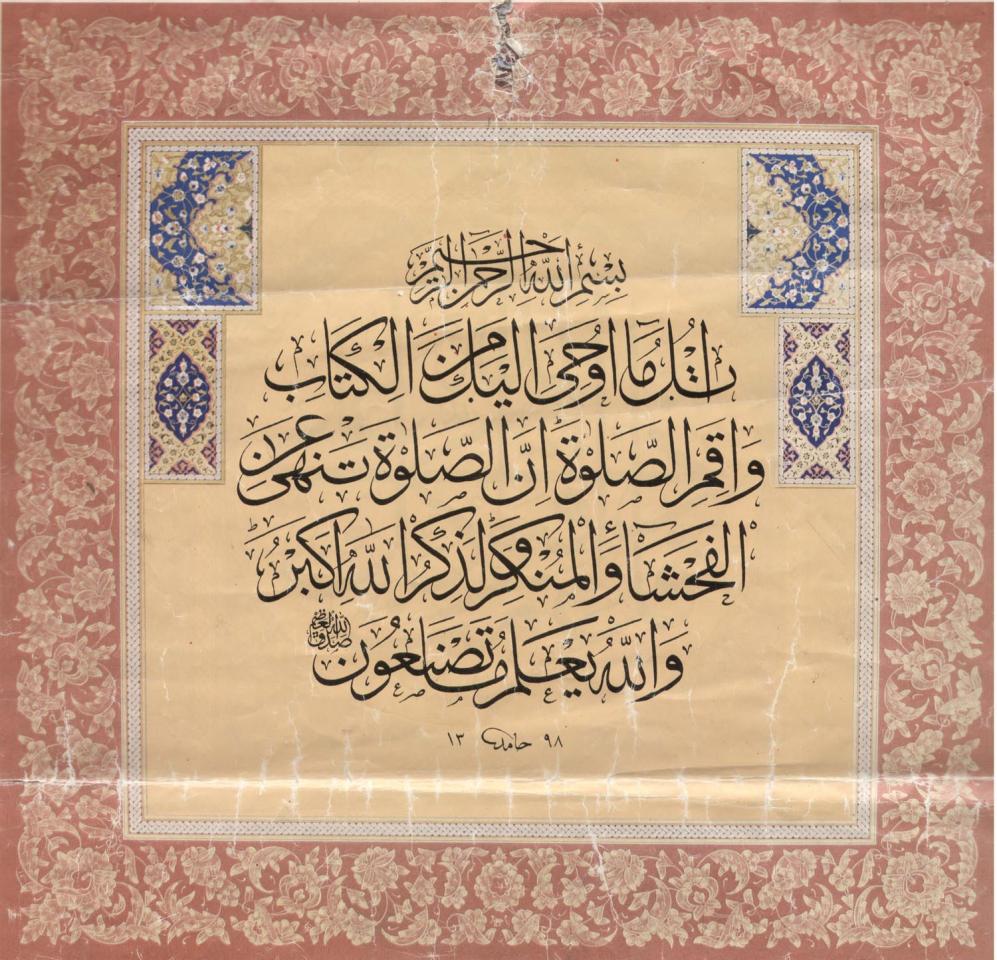 بِسْمِ اللّٰهِ الرَّحْمٰنِ الرَّحِيمِ
اُتْلُ مَا اُوحِيَ اِلَيْكَ مِنَ الْكِتَابِ
وَاَقِمِ الصَّلٰوةَ اِنَّ الصَّلٰوةَ تَنْهٰى عَنِ
الْفَحْشَاءِ وَالْمُنْكَرِ وَلَذِكْرُ اللّٰهِ اَكْبَرُ
وَاللّٰهُ يَعْلَمُ مَا تَصْنَعُونَ صدق الله العظيم
٩٨ حامد ١٣